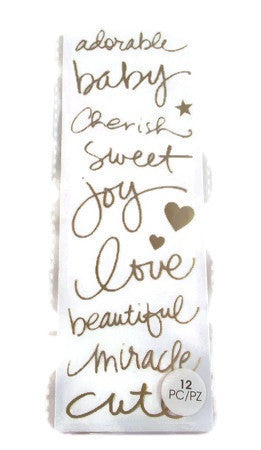 adorable
baby
Cherish
Sweet
joy
love
beautiful
miracle
cute
12
PC/PZ